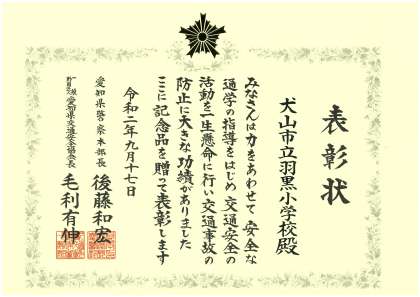 表彰状
犬山市立羽黒小学校殿
みなさんは力をあわせて 安全な
通学の指導をはじめ 交通安全の
活動を一生懸命に行い交通事故の
防止に大きな功績がありました
ここに記念品を贈って表彰します
令和二年九月十七日
愛知県警察本部長 後藤和宏
愛知県交通安全協会長 毛利有伸